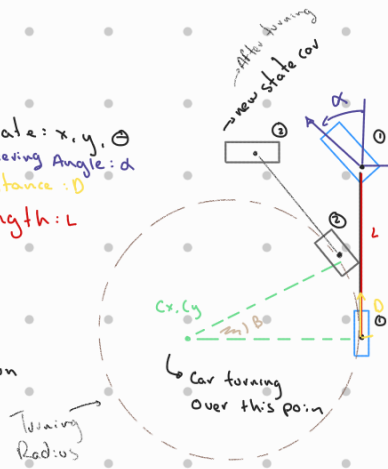 →After turning
→new state car
ate: x, y, Θ
ering Angle: α
tance: D
ngth: L
α
①
②
②
L
D
①
Cx, Cy
B
on
Car turning
Over this poin
Turning
Radius